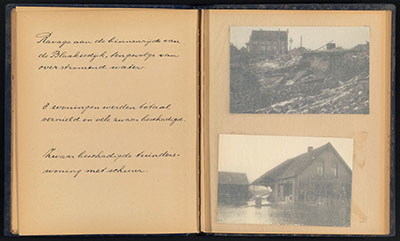 Ravage aan de binnenzijde van
de Blaaksedijk, tengevolge van
overstromend water.
8 woningen werden totaal
vernield en vele zwaar beschadigd.
Zwaar beschadigde tuinders-
woning met schuur.